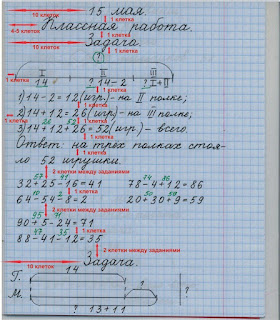 10 клеток 15 мая.
1 клетка
4-5 клеток Классная работа.
1 клетка
10 клеток Задача.
1 клетка
?
I II III
14 ? 14-2 ? I+II
1 клетка
1) 14-2=12 (игр.)-на II полке;
2) 14+12=26 (игр.)-на III полке;
1 клетка 26 52 1 клетка
3) 14+12+26=52 (игр.)- всего.
1 клетка
Ответ: на трёх полках стоя-
ло 52 игрушки.
2 клетки между заданиями
57 41 74 86
32+25-16=41 78-4+12=86
10 1 клетка 50 59
64-54-8=2 20+30+9=59
1 клетка
95 71
90+5-24=71
47 35 1 клетка
88-41-12=35
2 клетки между заданиями
10 клеток Задача.
14 1 клетка
П.
?
М.
? 13+11